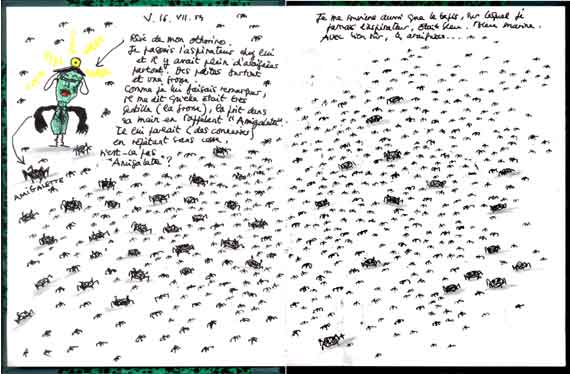 V. 16. VII. 13
Rêve de mon otorhino.
Je passais l'aspirateur chez lui
et il y avait plein d'araignées
partout. Des petites surtout
et une grosse.
Comme je lui faisais remarquer,
il me dit qu'elle était très
gentille (la grosse), la prit dans
sa main en l'appelant "Amigalette".
Il lui parlait (des conneries)
en répétant sans cesse,
n'est-ce pas
"Amigalette"?
AMIGALETTE
Je me souviens aussi que le tapis, sur lequel je
passais l'aspirateur, était bleu. Bleu marine.
Avec, bien sûr, les araignées....